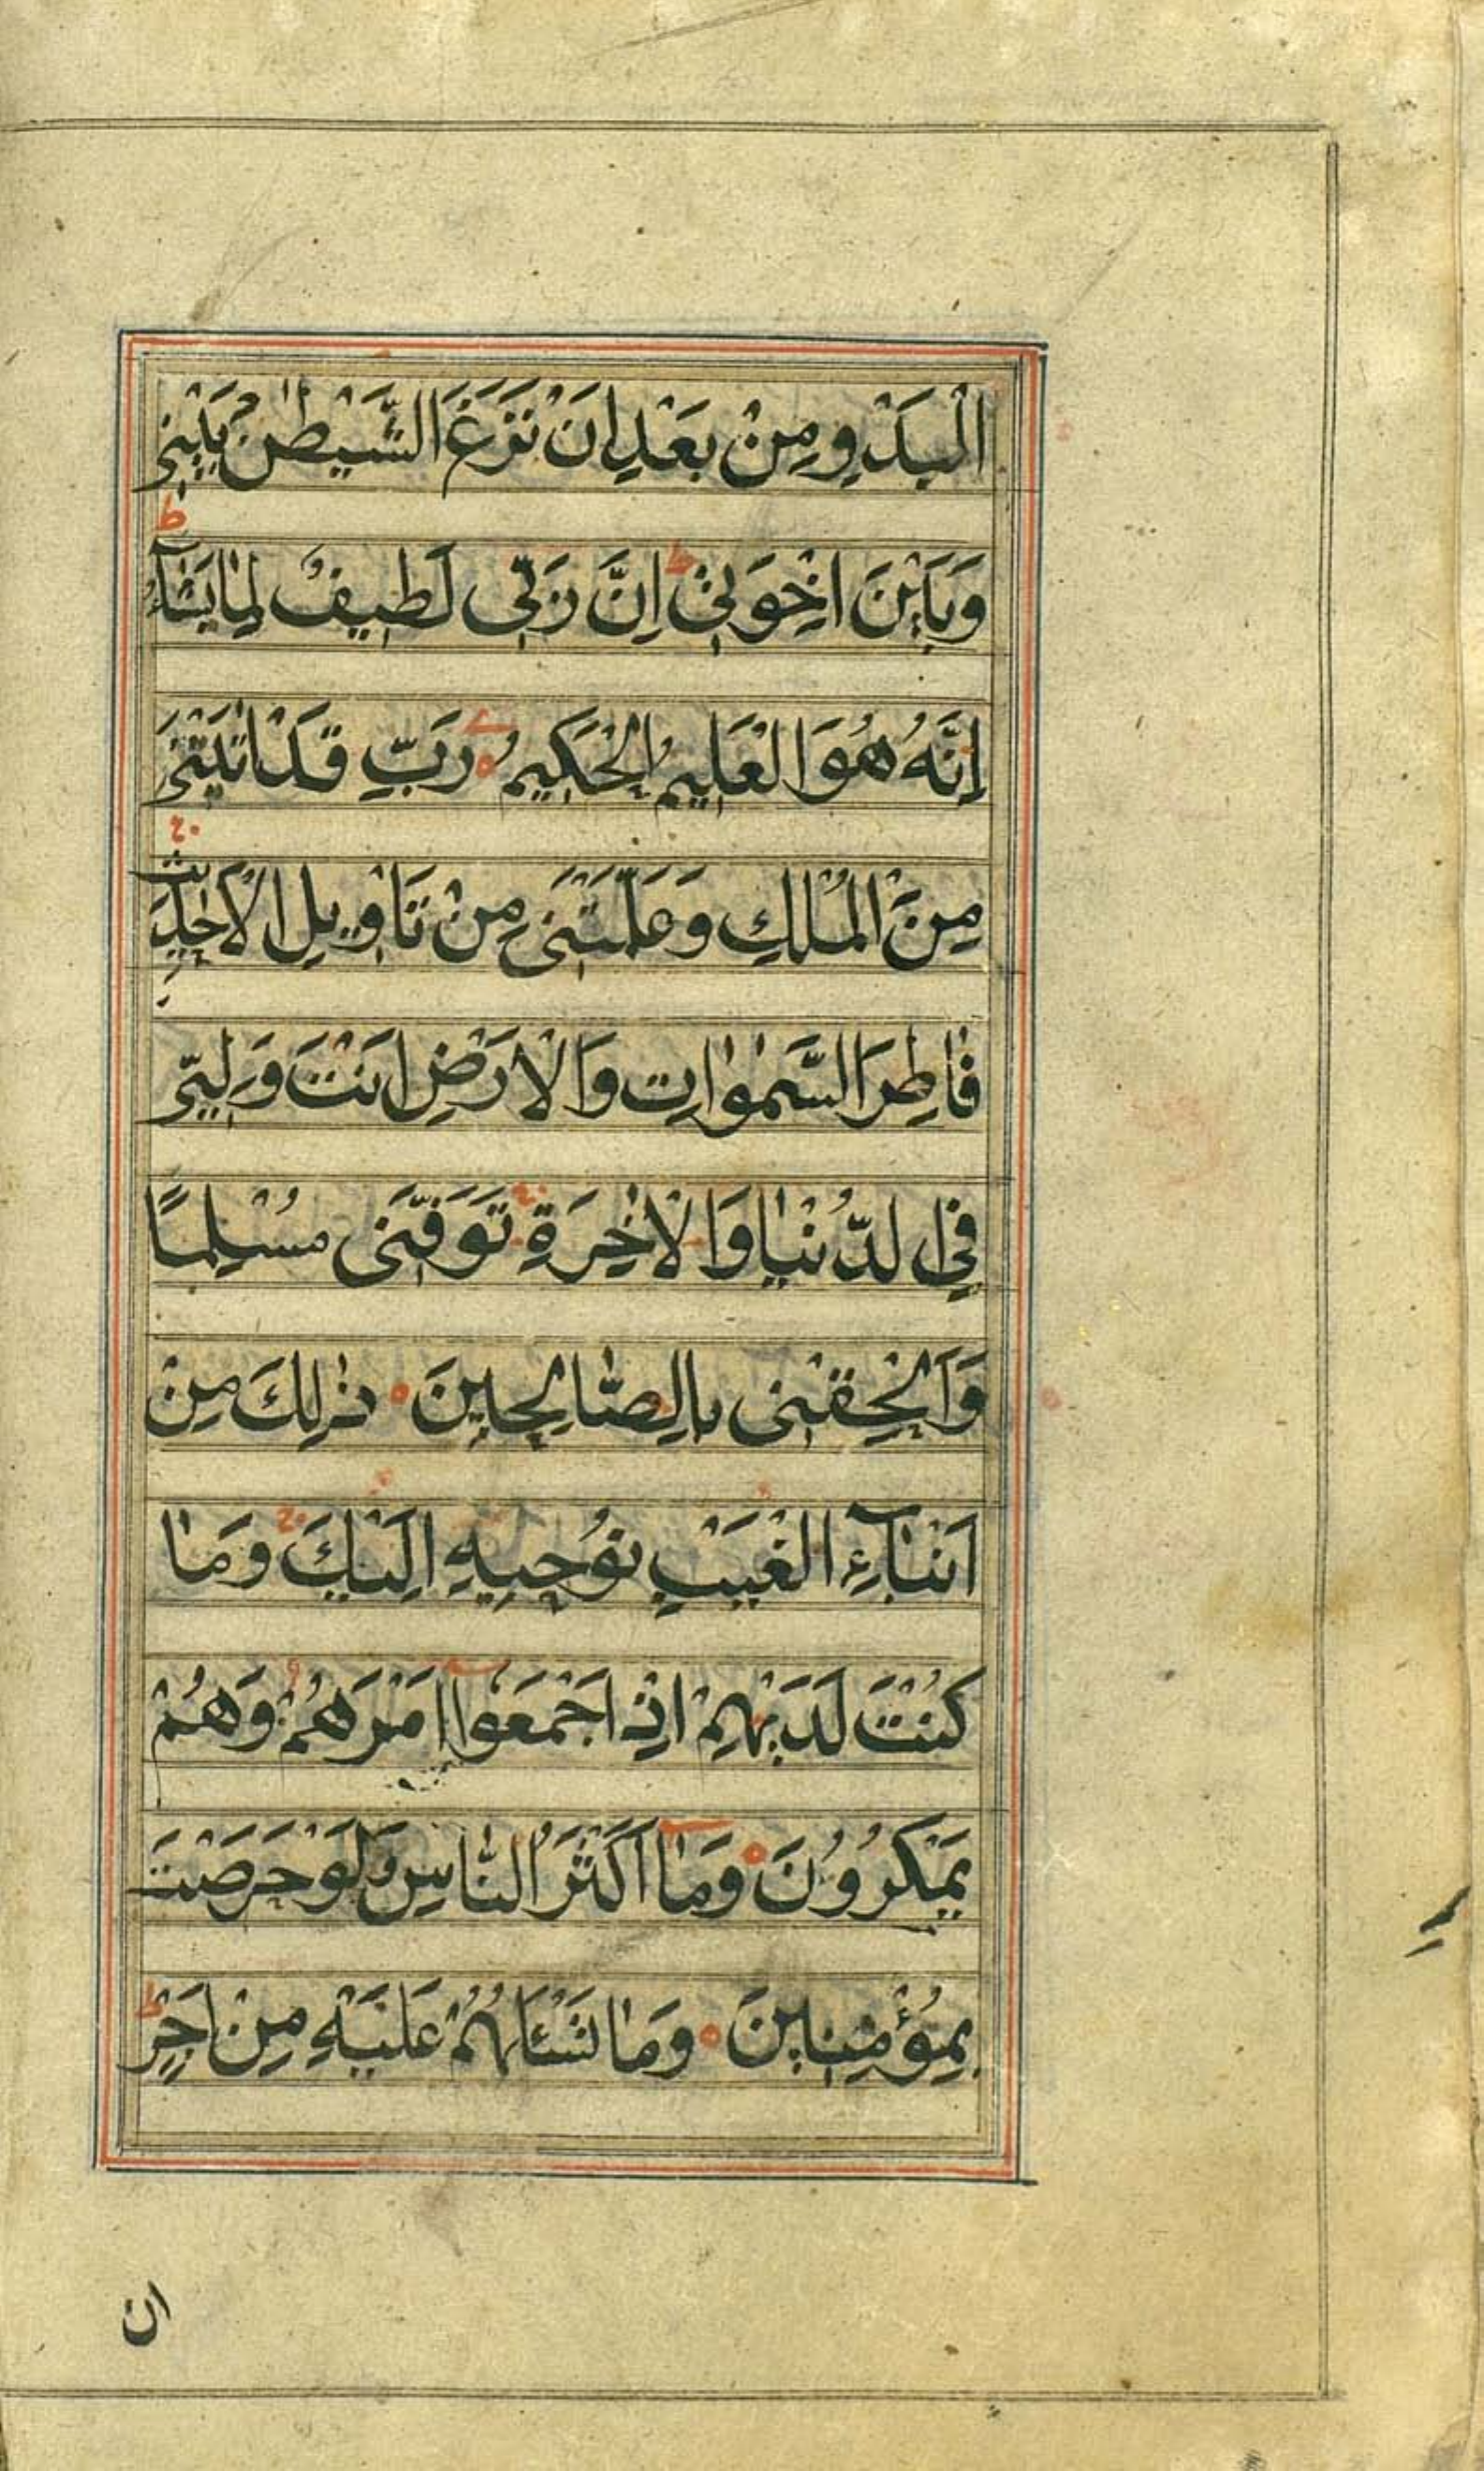 الْبَدْوِ مِنْ بَعْدِ اَنْ نَزَغَ الشَّيْطٰنُ بَيْنِى
وَبَيْنَ اِخْوَتِىْ ط اِنَّ رَبِّى لَطِيفٌ لِمٰا يَشٰآءُ ط
اِنَّهُ هُوَ الْعَلِيمُ الْحَكِيمُ رَبِّ قَدْ اٰتَيْتَنِى
مِنَ الْمُلْكِ وَعَلَّمْتَنِى مِنْ تَاْوِيلِ الْاَحٰادِيثِ
فٰاطِرَ السَّمٰوٰاتِ وَالْاَرْضِ اَنْتَ وَلِيّى
فِى الدُّنْيٰا وَالْاٰخِرَةِ تَوَفَّنِى مُسْلِمًا
وَاَلْحِقْنِى بِالصّٰالِحِينَ ذٰلِكَ مِنْ
اَنْبٰآءِ الْغَيْبِ نُوْحِيهِ اِلَيْكَ وَمٰا
كُنْتَ لَدَيْهِمْ اِذْ اَجْمَعُوا اَمْرَهُمْ وَهُمْ
يَمْكُرُوُنَ وَمٰآ اَكْثَرُ النّٰاسِ وَلَوْ حَرَصْتَ
بِمُؤْمِنِينَ وَمٰا تَسْئَلُهُمْ عَلَيْهِ مِنْ اَجْرٍ ط
ان